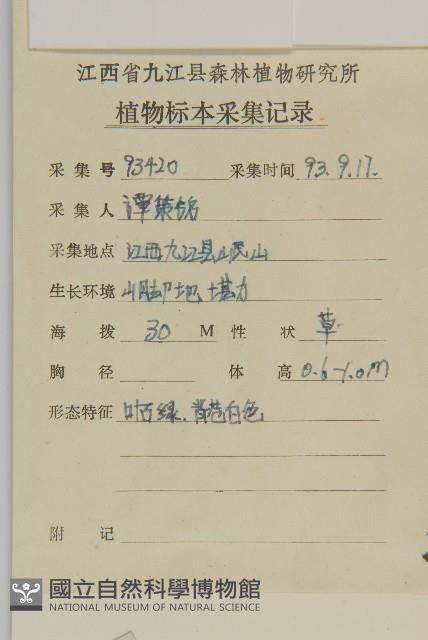 江西省九江县森林植物研究所
植物标本采集记录
采集号 93420 采集时间 93.9.17.
采集人 谭策铭
采集地点 江西九江县岷山
生长环境 山脚地
海拨 30 M 性状 草
胸径 体高 0.6-1.0m
形态特征 叶百绿.背苍白色
附记
國立自然科學博物館
NATIONAL MUSEUM OF NATURAL SCIENCE